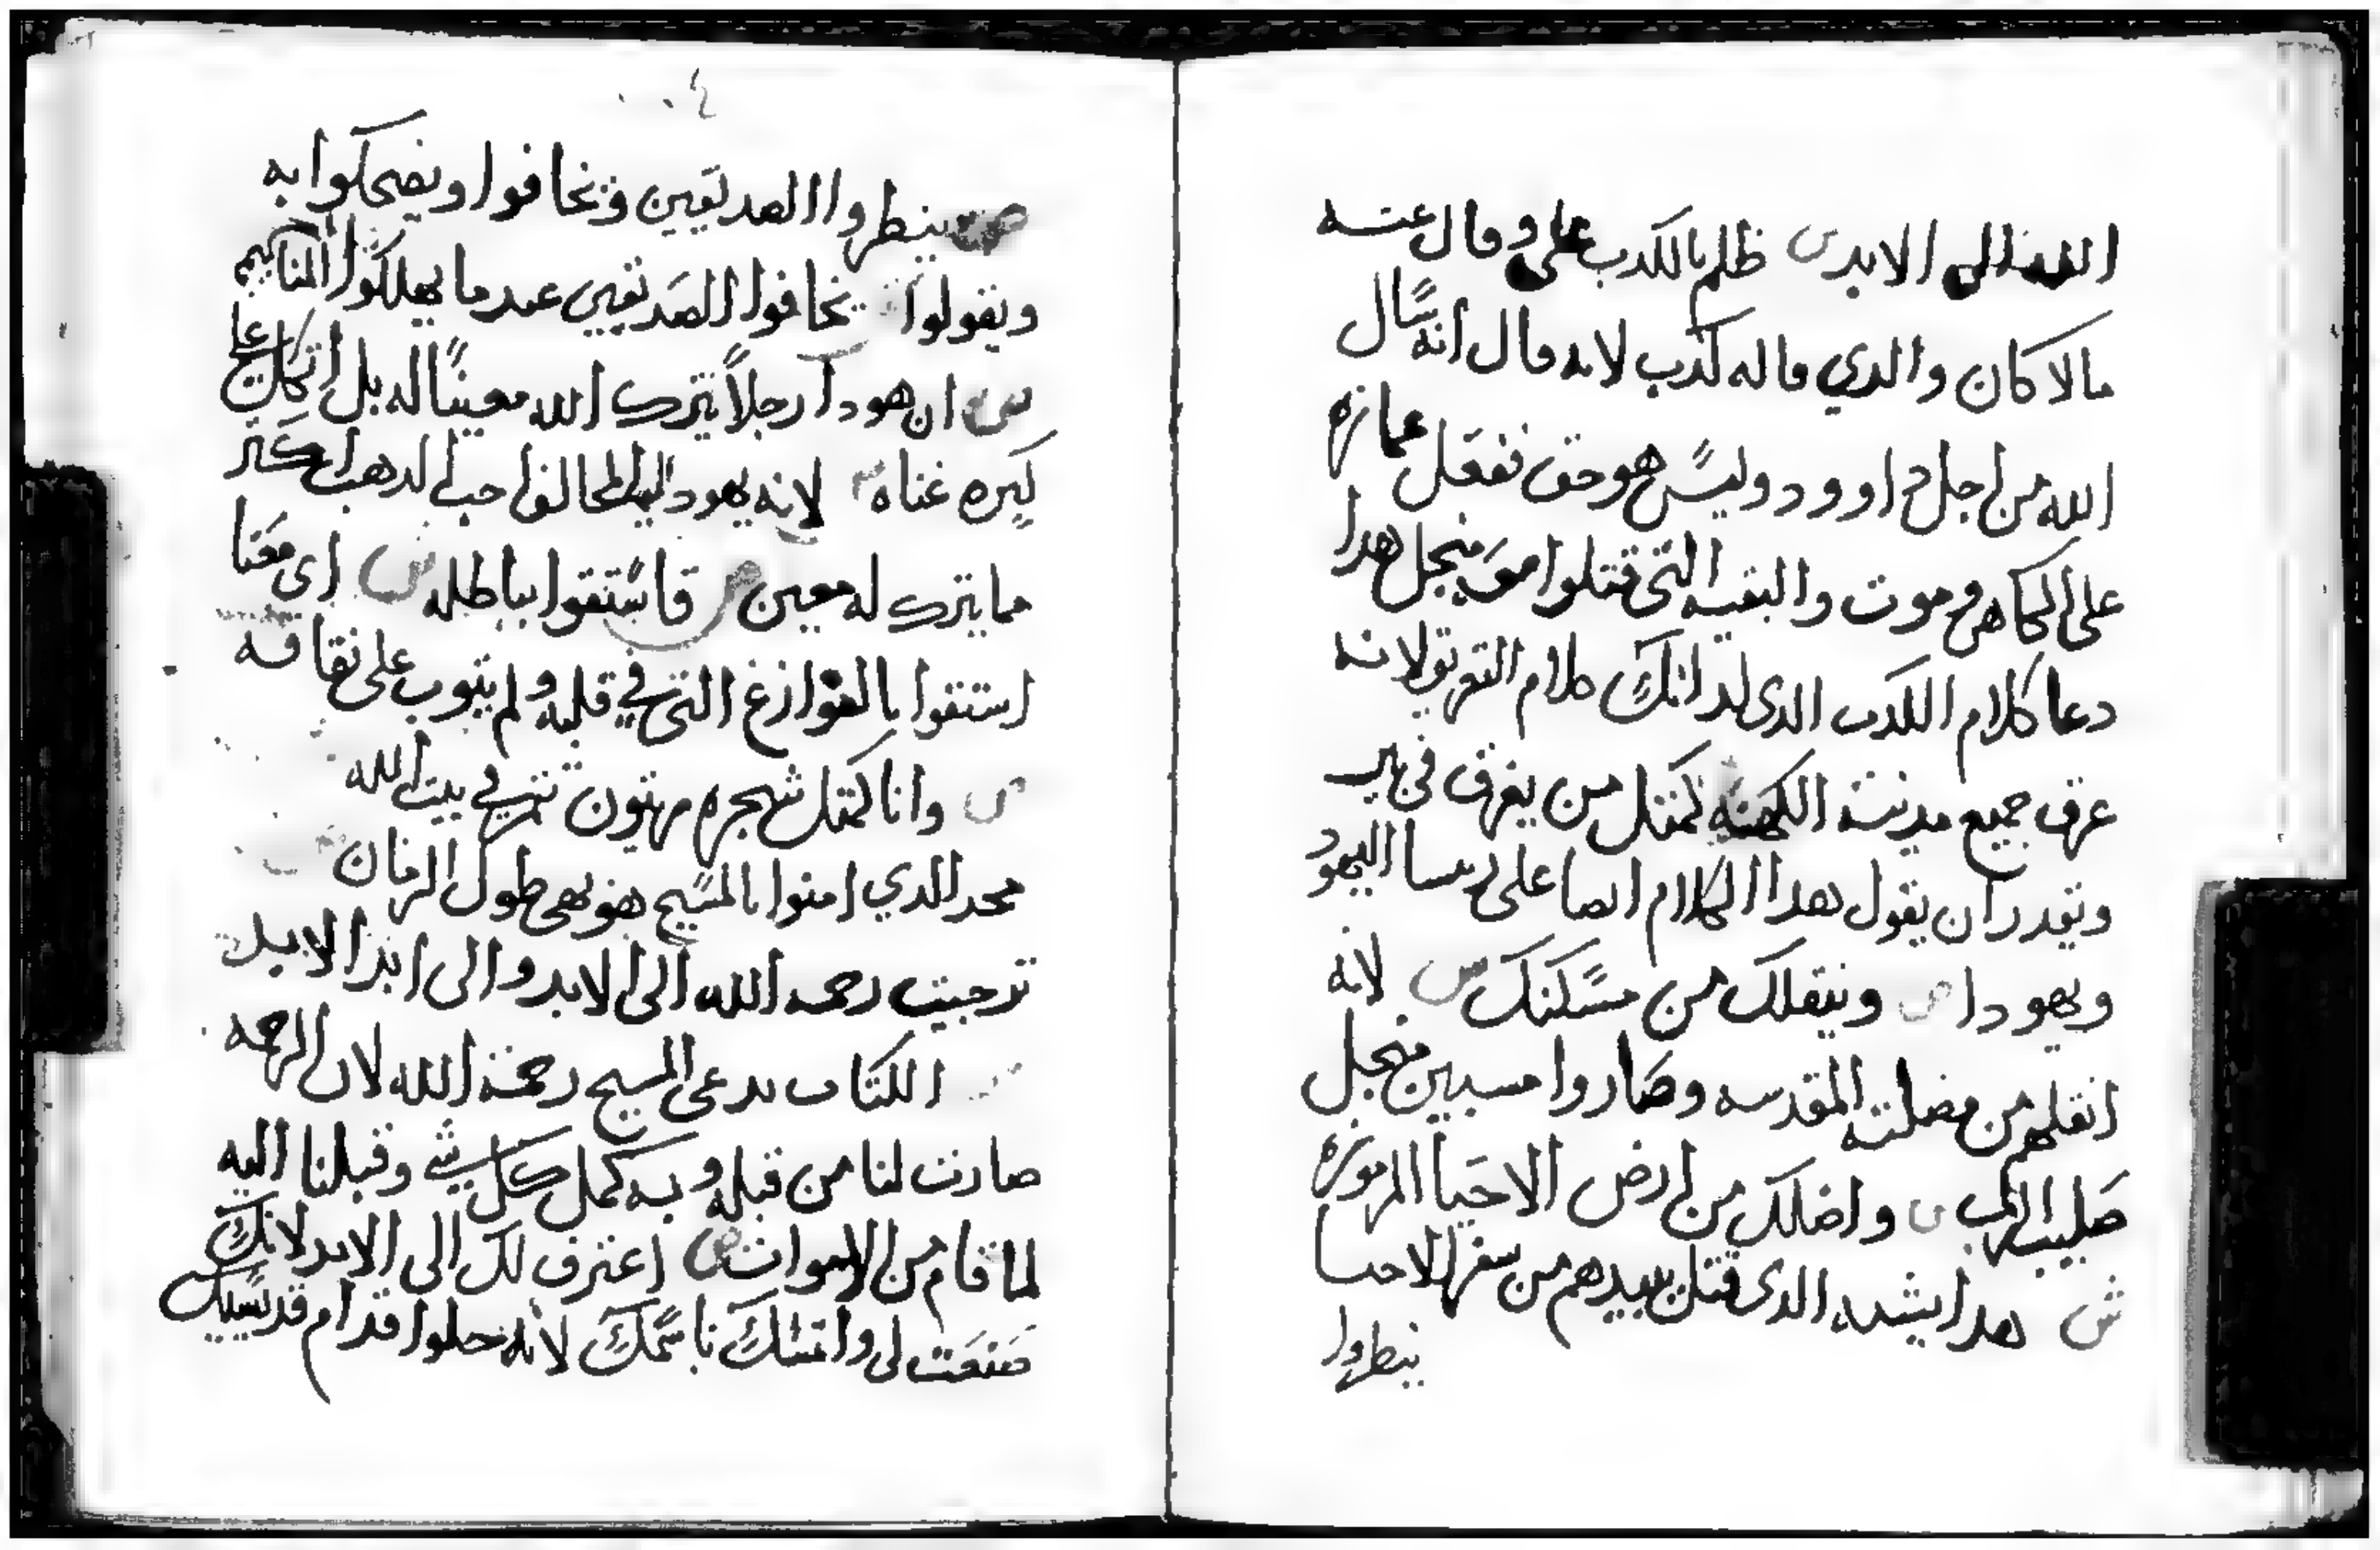 الله الى الابد س ظلم بالكدب على وقال عنه
مالا كان والدي قاله كدب لانه قال انه سال
الله من اجل داوود وليس هو حق نفعل عمازه
على الكاهن وموت والبقيه التي قتلوا معه منجل هدا
دعا كلام الكدب الدى لدانك كلام التغريق لانه
غرق جميع مدينت الكهنه كمتل من يغرق فى بير
ونقدر ان نقول هدا الكلام ايضا على ريسا اليهود
ويهودا ص وينقلك من مسكنك س لانه
انقلهم من مضلته المقدسه وصاروا مسبيين منجل
صليب الرب ص واضلك من ارض الاحيا المرموزه
ش هدا يشبه الدى قتلن بيدهم من سفر الاحيا
ينطروا
ص ينطروا الصديقين وتخافوا ويضحكوا به
ويقولوا تخافوا الصديقين عندما يهلكوا المنافقيم
ان هودا رجلاً يترك الله معيناً له بل اتكل على
كتره غناه س لانه يهودا المخالف احب الدهب اكتر
ما يترك له معين ص فاستقوا بباطله س اى معنا
استقوا بالفوازغ التى في قلبه ولم يتوب على نفاقه
ص وانا كمتل شجره زيتون تتمر في بيت الله
مجد الدي امنوا بالمسيح هو بهي طول الزمان
ترجيت رحمه الله الى الابد والى ابد الابد
س الكتاب يدعى المسيح رحمة الله لان الرحمه
صارت لنا من قبله وبه كمل كل شي وقبلنا اليه
لما قام من الاموات ص اعترف لك الى الابد لانك
صنعت لى واتمسك باسمك لانه حلوا قدام قديسيك